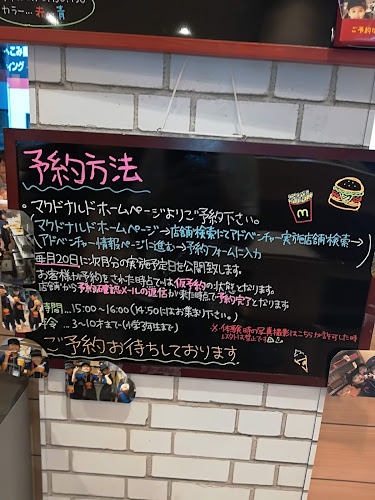 カラー…赤・青
ご予約
予約方法
・マクドナルドホームページよりご予約下さい。
(マクドナルドホームページ→店舗検索にてアドベンチャー実施店舗検索→
アドベンチャー情報ページに進む→予約フォームに入力
毎月20日に次月分の実施予定日を公開致します。
お客様が予約をされた時点では仮予約の状態となります。
店舗から予約確認メールの返信が来た時点で予約完了となります
時間…15:00~16:00(14:50にはお集まり下さい。)
…3~10才まで(小学3年生まで)
※体験時の写真撮影はこちらが許可した時
以外は禁止です
ご予約お待ちしております